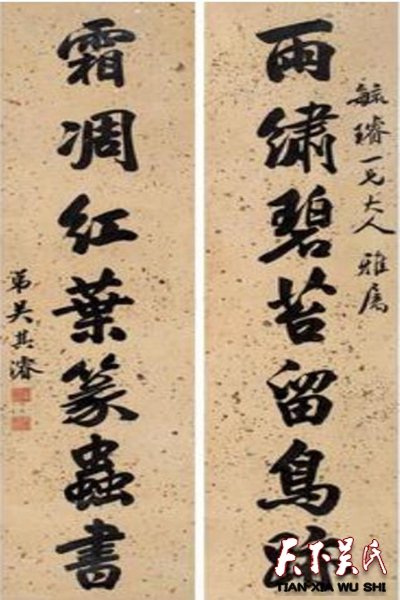 毓璿一兄大人雅屬
雨繡碧苔留鳥跡
霜凋紅葉篆蟲書
弟吳其濬
天下吴氏
TIAN XIA WU SHI